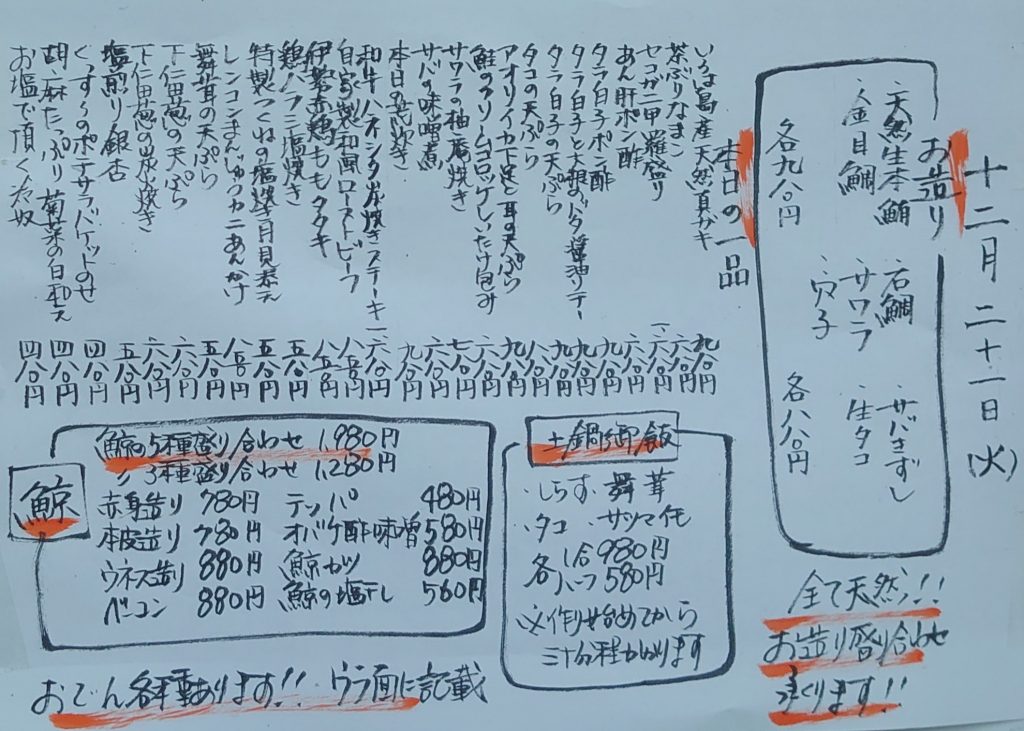 十二月二十一日(火)
お造り
・天然生本鮪 ・石鯛 ・サバきずし
・金目鯛 ・サワラ ・生タコ
・穴子
各九八〇円 各八八〇円
全て天然!!
お造り盛り合わせ
承ります!!
本日の一品
いろは島産天然真ガキ 九八〇円
茶ぶりなまこ 六八〇円
セコガニ甲羅盛り
あん肝ポン酢
タラ白子ポン酢
タラ白子と大根のバタ醤油ソテー
タラ白子の天ぷら
タコの天ぷら
アオリイカ下足と耳の天ぷら
鮭のクリームコロッケしいたけ包み
サワラの柚庵焼き
サバの味噌煮
本日の荒炊き
和牛ハネシタ炭焼きステーキ
自家製和風ローストビーフ
伊勢赤鶏ももタタキ
鶏ハラミ塩焼き 五八〇円
特製つくねの塩焼き月見添え 五八〇円
レンコンまんじゅうカニあんかけ 八五〇円
舞茸の天ぷら 五八〇円
下仁田葱の天ぷら 六八〇円
下仁田葱の炭焼き 六八〇円
塩煎り銀杏 五八〇円
ぐっすぅのポテサラバケットのせ 四八〇円
胡麻たっぷり菊菜の白和え 四八〇円
お塩で頂く冷奴 四八〇円
土鍋御飯
・しらす・舞茸
・タコ・サツマイモ
各 1合 980円
ハーフ 580円
※作り始めてから
三十分程かかります
鯨
鯨の5種盛り合わせ 1,980円
〃 3種盛り合わせ 1,280円
赤身造り 780円 テッパ 480円
本皮造り 780円 オバケ酢味噌 580円
ウネス造り 880円 鯨カツ 880円
ベーコン 880円 鯨の塩干し 560円
おでん各種あります!! ウラ面に記載